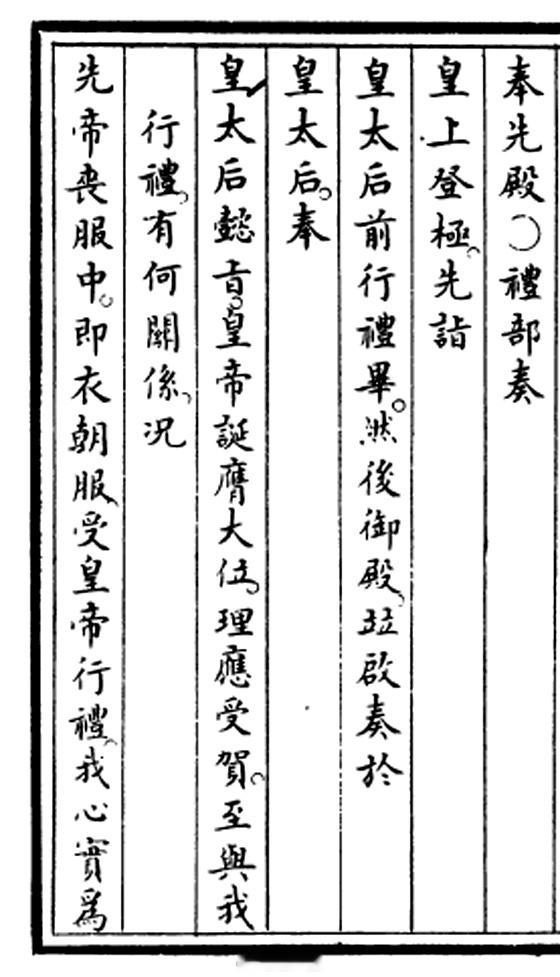 奉先殿〇禮部奏
皇上登極。先詣
皇太后前行禮畢。然後御殿。竝啟奏於
皇太后。奉
皇太后懿旨。皇帝誕膺大位。理應受賀。至與我
行禮。有何關係。况
先帝喪服中。即衣朝服。受皇帝行禮。我心實爲